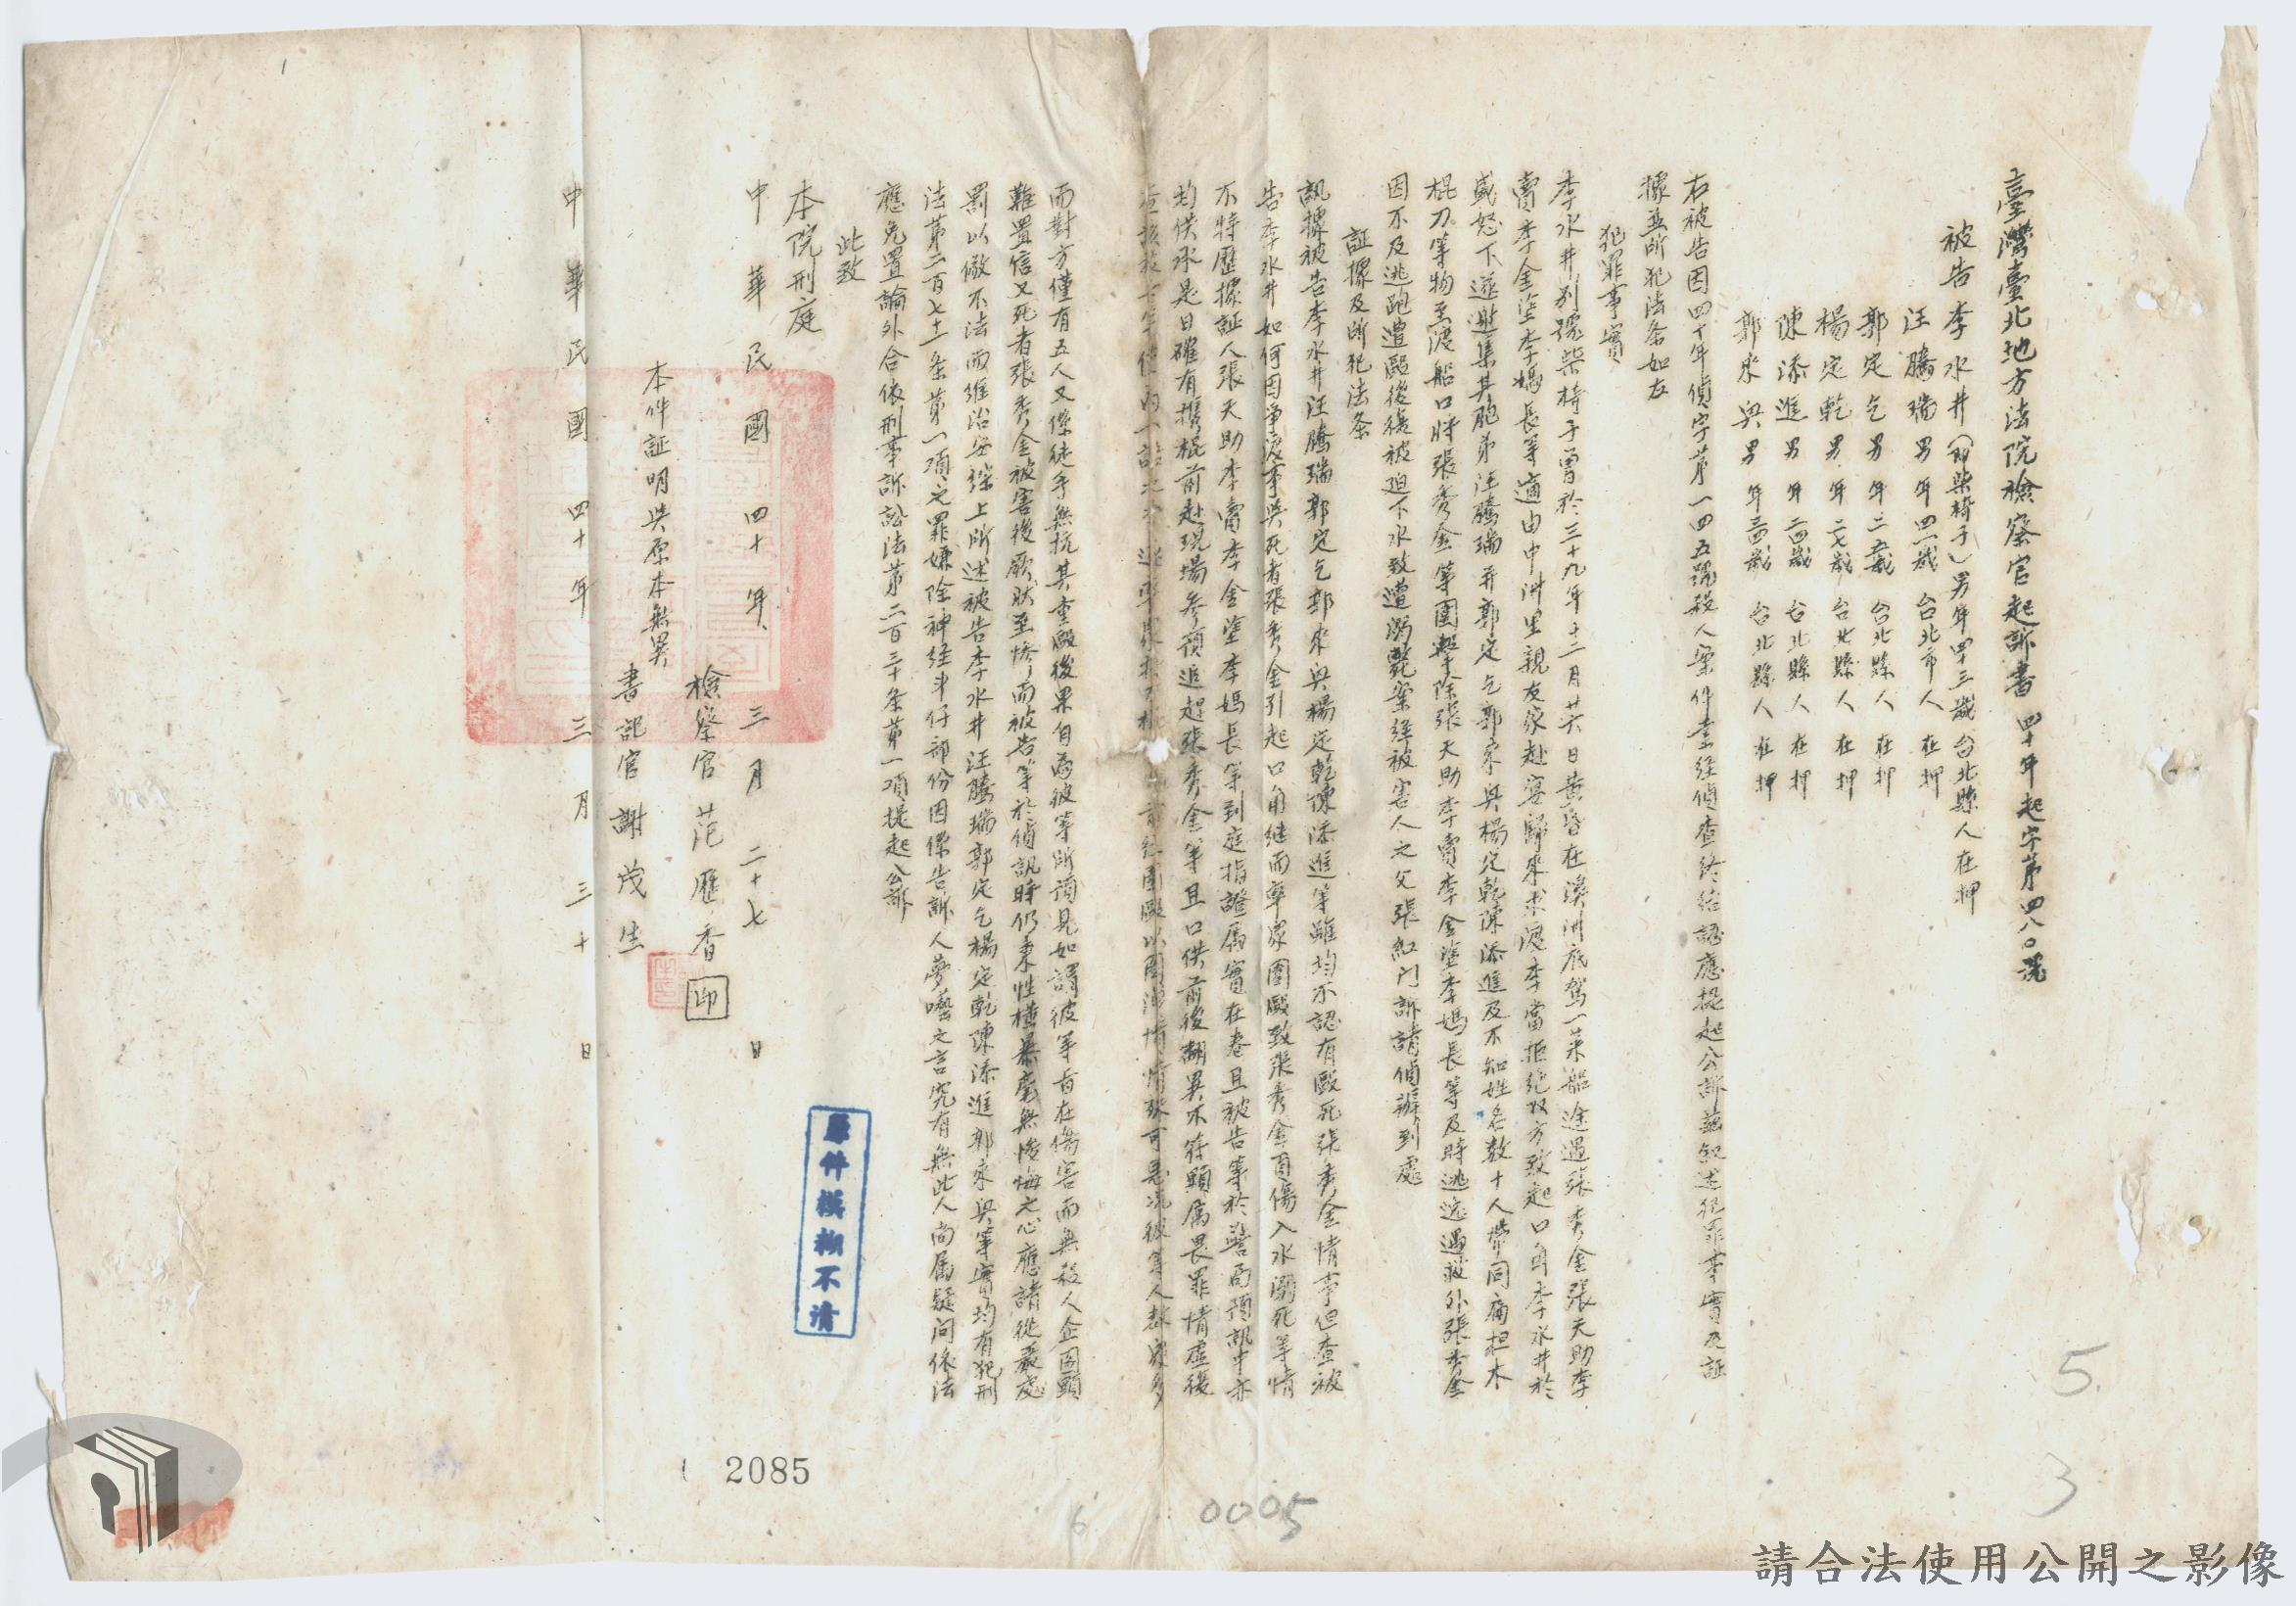 臺灣臺北地方法院檢察官起訴書 四十年起字第四八〇號
被告 李水井(即柴椅子)男年四十三歲台北縣人在押
汪騰瑞男年四一歲 台北市人 在押
郭定乞男年二五歲 台北縣人 在押
楊定乾男年二七歲 台北縣人 在押
陳添進男年二四歲 台北縣人 在押
郭來與男年三四歲 台北縣人 在押
右被告因四十年偵字第一四五號殺人案件業經偵查終結認應提起公訴茲敘述犯罪事實及証
據並所犯法条如左
犯罪事實
李水井別號柴椅子曾於三十九年十二月廿六日黃昏在溪洲底駕一菜船途過張秀金張天助李
賣李金塗李媽長等適由中洲里親友家赴宴歸來求渡李當拒絕双方致起口角李水井於
盛怒下遂邀集其胞弟汪騰瑞并郭定乞郭來與楊定乾陳添進及不知姓名数十人帶同扁担木
棍刀等物至渡船口將張秀金等圍擊除張天助李賣李金塗李媽長等及時逃逸遇救外張秀金
因不及逃跑遭毆後復被迫下水致遭溺斃案經被害人之父張紅門訴請偵辦到處
証據及所犯法条
訊據被告李水井汪騰瑞郭定乞郭來與楊定乾陳添進等雖均不認有毆死張秀金情事但查被
告李水井如何因爭渡事與死者張秀金引起口角繼而率眾圍毆致張秀金負傷入水溺死等情
不特歷據証人張天助李賣李金塗李媽長等到庭指證屬實在卷且被告等於警局預訊中亦
均供承是日確有携棍前赴現場參預追趕張秀金等且口供前後翻異不符顯屬畏罪情虛後
而對方僅有五人又係徒手無抗其重毆後果自為彼等所預見如謂彼等旨在傷害而無殺人企圖顯
難置信又死者張秀金被害後厥狀至慘而被告等於偵訊時仍秉性橫暴毫無悛悔之心應請從嚴處
罰以儆不法而維治安綜上所述被告李水井汪騰瑞郭定乞楊定乾陳添進郭來與等實均有犯刑
法第二百七十一条第一項之罪嫌除神經斗仔部份因係告訴人夢囈之言究有無此人尚屬疑問依法
應免置論外合依刑事訴訟法第二百三十条第一項提起公訴
此致
本院刑庭
中華民國四十年三月二十七日
檢察官 范雁香 印
本件証明與原本無異
書記官 謝茂生
中華民國四十年三月三十日
原件模糊不清
2085
0005
6
5
3
請合法使用公開之影像